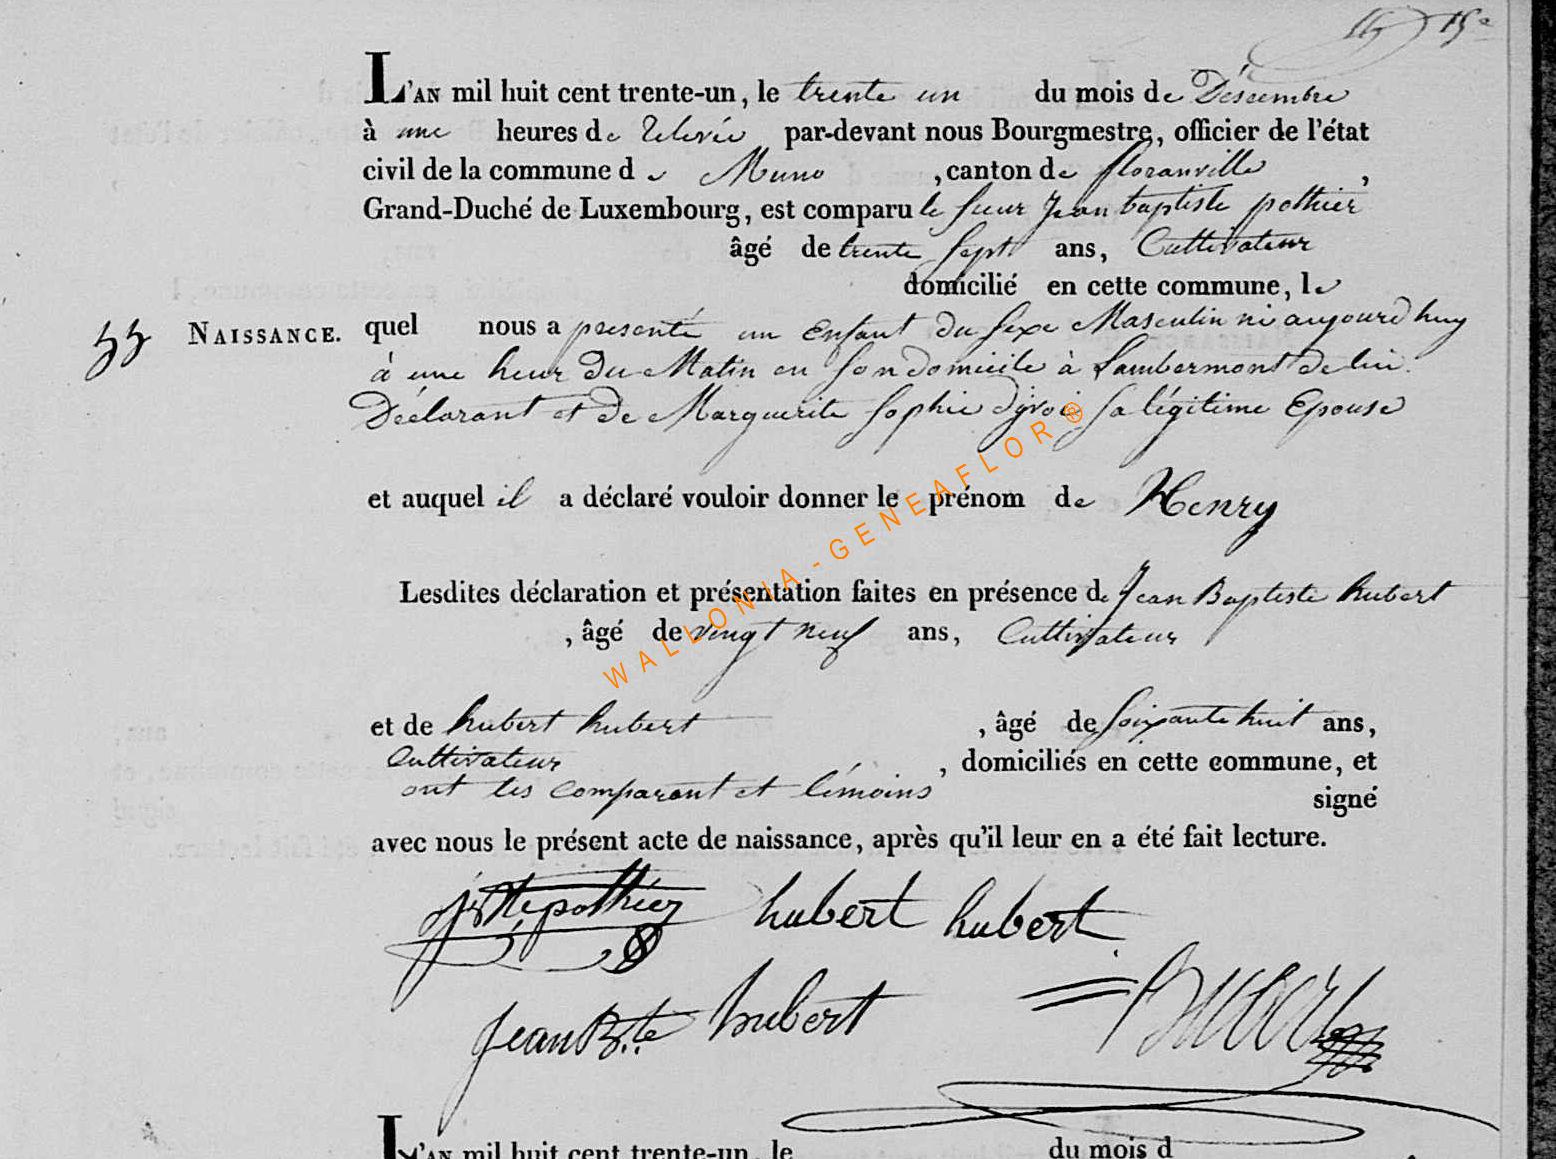 15e
L'AN mil huit cent trente-un, le trente un du mois de Déscembre
à une heures de Relevée par-devant nous Bourgmestre, officier de l'état
civil de la commune de Muno, canton de floranville,
Grand-Duché de Luxembourg, est comparu le sieur Jean baptiste pothier
âgé de trente sept ans, Cultivateur
domicilié en cette commune, le
55 NAISSANCE. quel nous a presenté un Enfant du sexe Masculin né aujourd huy
à une heur du Matin en son domicile à Lambermont de lui
Déclarant et de Marguerite Sophie sa légitime Epouse
et auquel il a déclaré vouloir donner le prénom de Henry
Lesdites déclaration et présentation faites en présence de Jean Baptiste hubert
, âgé de vingt neuf ans, Cultivateur
et de hubert hubert, âgé de soixante huit ans,
Cultivateur, domiciliés en cette commune, et
ont les comparant et témoins signé
avec nous le présent acte de naissance, après qu'il leur en a été fait lecture.
jbte pothier hubert hubert
Jean Bte hubert
L'AN mil huit cent trente-un, le du mois d
WALLONIA-GENEAFLOR®